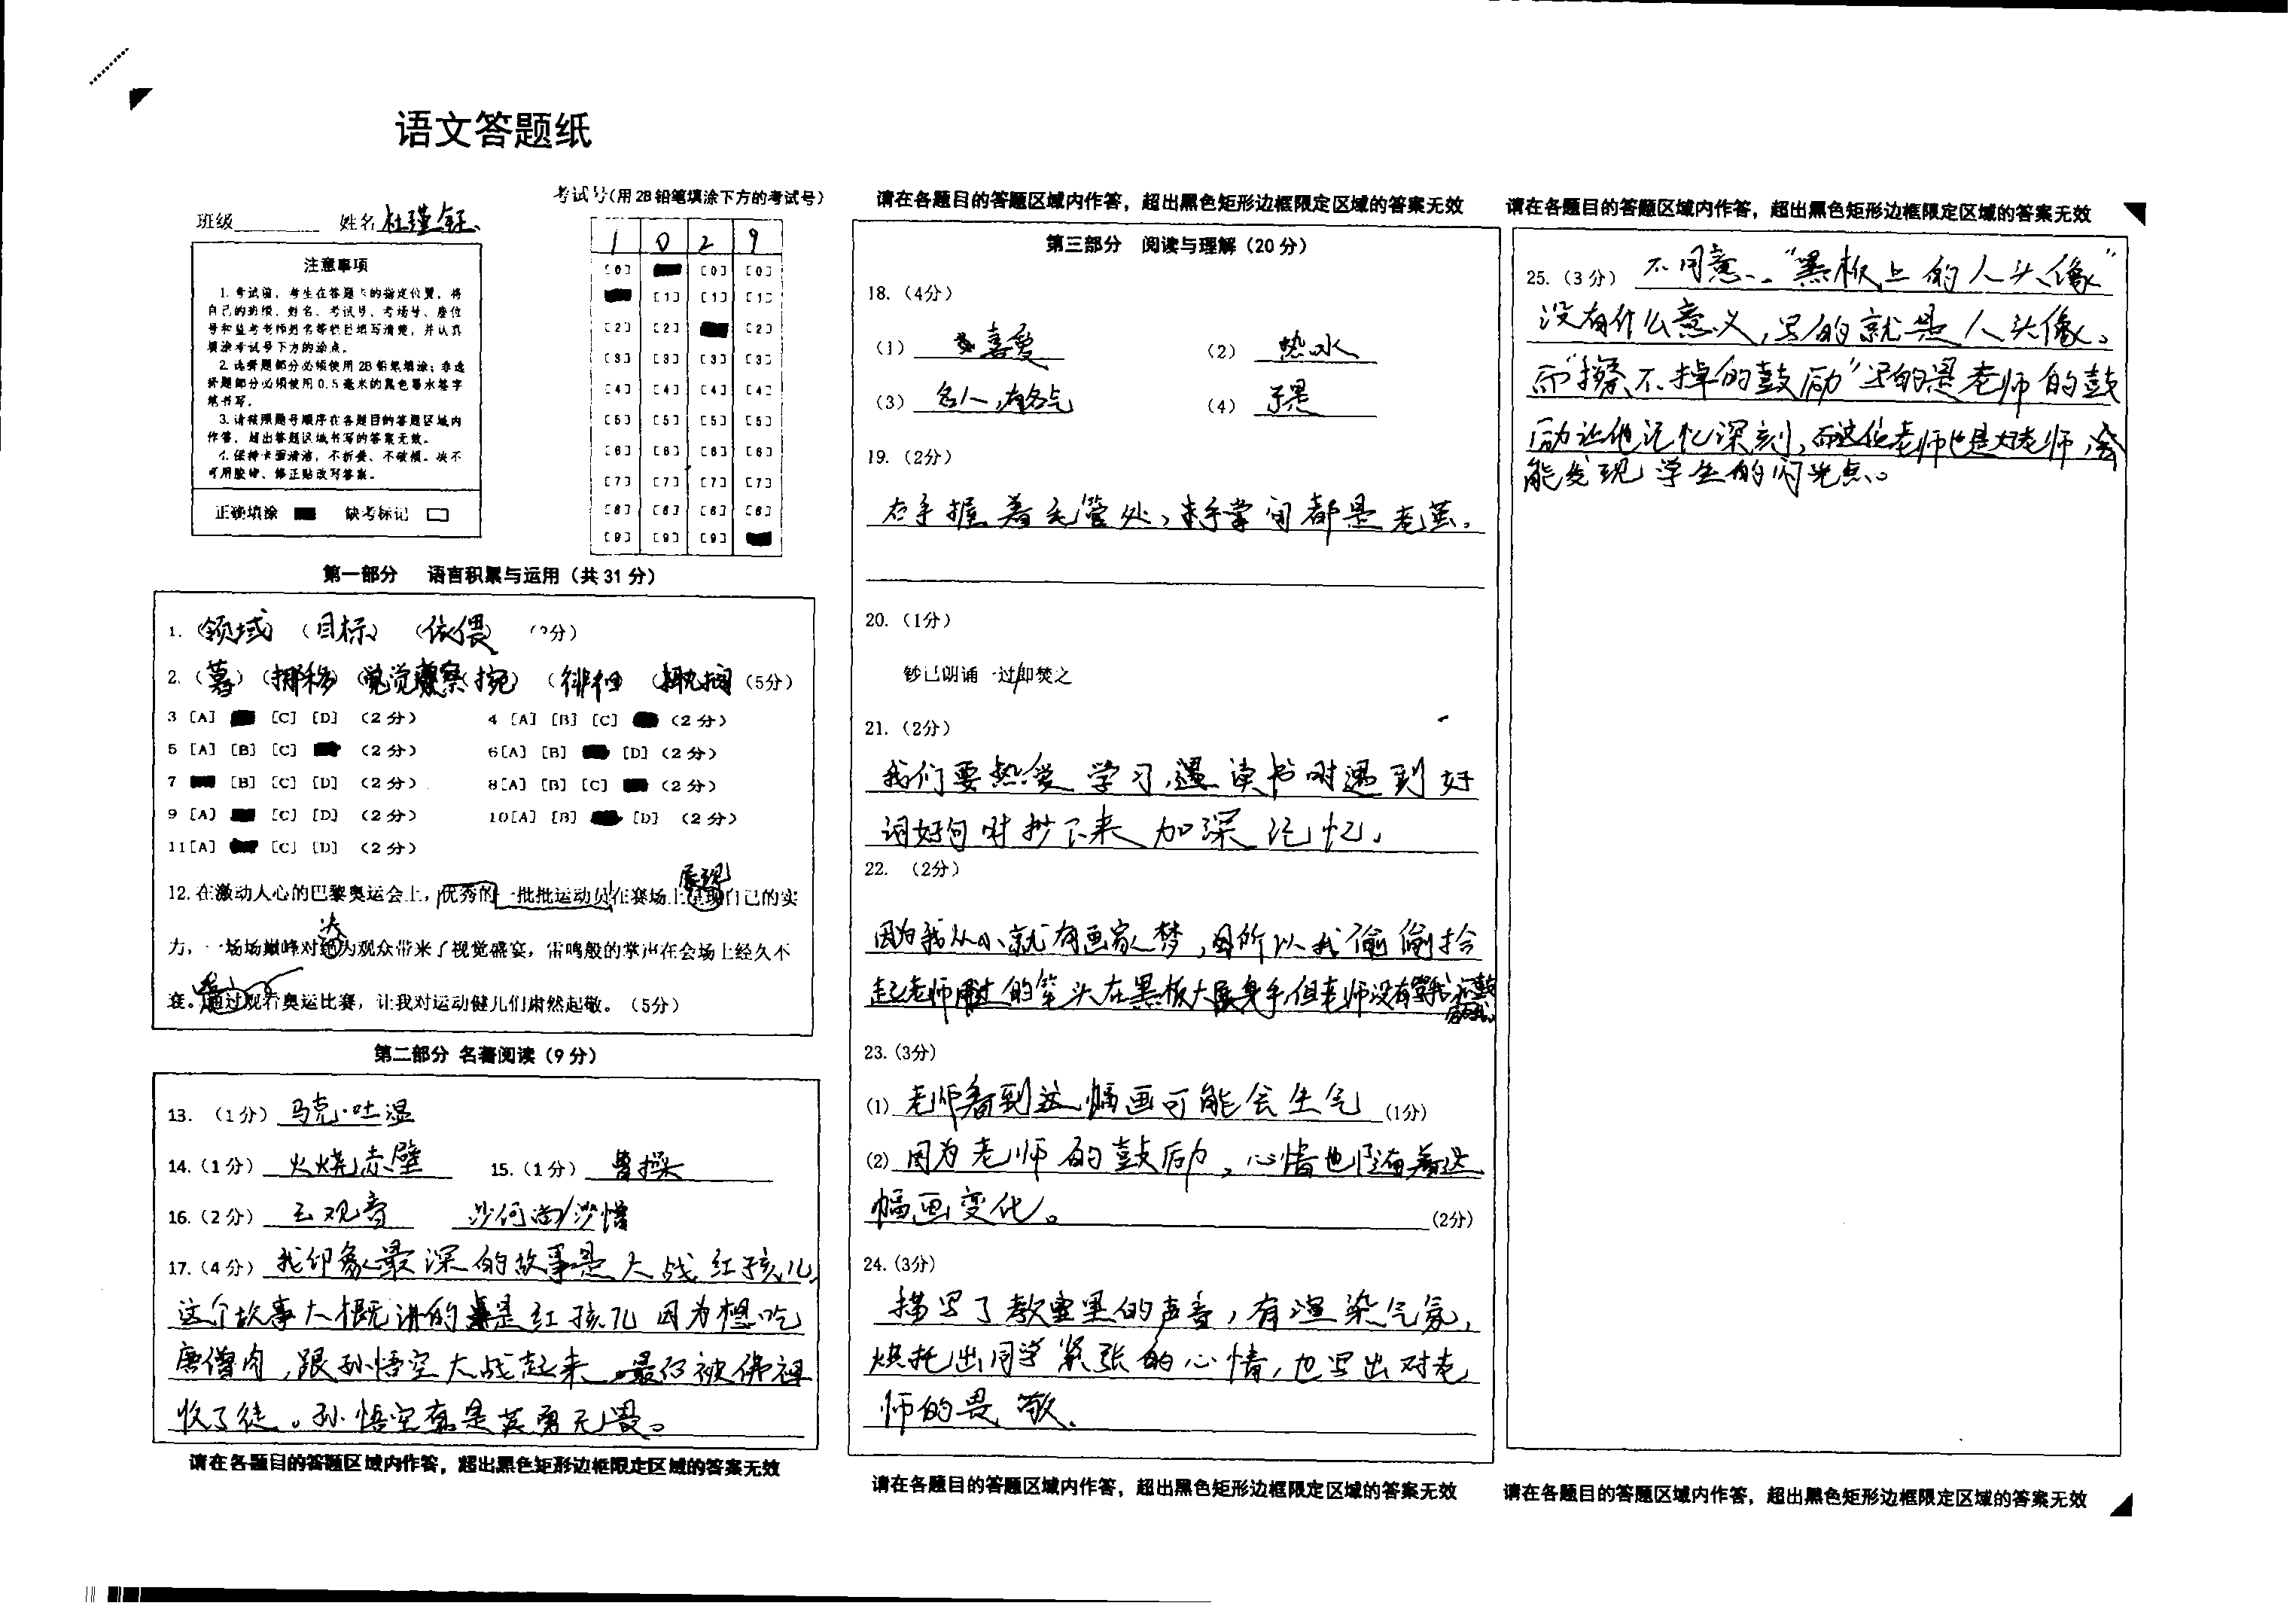 语文答题纸
班级 姓名 杜瑾钰
考试号(用2B铅笔填涂下方的考试号)
1 0 2 9
[0] [0] [0]
[1] [1] [1]
[2] [2] [2]
[3] [3] [3] [3]
[4] [4] [4] [4]
[5] [5] [5] [5]
[6] [6] [6] [6]
[7] [7] [7] [7]
[8] [8] [8] [8]
[9] [9] [9]
注意事项
1. 考试前,考生在答题卡的指定位置,将
自己的班级、姓名、考试号、考场号、座位
号和监考老师姓名等栏目填写清楚,并认真
填涂考试号下方的涂点。
2. 选择题部分必须使用2B铅笔填涂;非选
择题部分必须使用0.5毫米的黑色墨水签字
笔书写。
3. 请按照题号顺序在各题目的答题区域内
作答,超出答题区域书写的答案无效。
4. 保持卡面清洁,不折叠、不破损。决不
可用胶带、修正贴改写答案。
正确填涂 缺考标记
第一部分 语言积累与运用(共31分)
1. (领域) (目标) (依偎)
2. (募) (拥移) (觉察) (捥) (徘徊) (5分)
3 [A] [C] [D] (2分) 4 [A] [B] [C] (2分)
5 [A] [B] [C] (2分) 6[A] [B] [D] (2分)
7 [B] [C] [D] (2分) 8[A] [B] [C] (2分)
9 [A] [C] [D] (2分) 10[A] [B] [D] (2分)
11[A] [C] [D] (2分)
展现
12. 在激动人心的巴黎奥运会上,优秀的一批批运动员在赛场上呈现自己的实
决
力,一场场巅峰对绝为观众带来了视觉盛宴,雷鸣般的掌声在会场上经久不
衰。通过观看奥运比赛,让我对运动健儿们肃然起敬。(5分)
第二部分 名著阅读(9分)
13. (1分) 马克·吐温
14. (1分) 火烧赤壁 15. (1分) 曹操
16. (2分) 云观音 沙何尚/沙悟
17. (4分) 我印象最深的故事是大战红孩儿,
这个故事大概讲的是红孩儿因为想吃
唐僧肉,跟孙悟空大战起来,最后被佛祖
收了徒。孙悟空真是英勇无畏。
请在各题目的答题区域内作答,超出黑色矩形边框限定区域的答案无效
请在各题目的答题区域内作答,超出黑色矩形边框限定区域的答案无效
第三部分 阅读与理解(20分)
18. (4分)
(1) 喜爱 (2) 热水
(3) 名人,有名气 (4) 于是
19. (2分)
右手握着毛管处,手掌间都是老茧。
20. (1分)
钞已朗诵一过/即焚之
21. (2分)
我们要热爱学习,读书时遇到好
词好句时抄下来加深记忆。
22. (2分)
因为我从小就有画家梦,所以我偷偷拾
起老师用过的笔头在黑板大展身手,但老师没有
23. (3分)
(1) 老师看到这幅画可能会生气 (1分)
(2) 因为老师的鼓励,心情也随着这
幅画变化。 (2分)
24. (3分)
描写了教室里的声音,有渲染气氛,
烘托出同学紧张的心情,也写出对老
师的畏敬。
请在各题目的答题区域内作答,超出黑色矩形边框限定区域的答案无效
请在各题目的答题区域内作答,超出黑色矩形边框限定区域的答案无效
25. (3分) 不同意、“黑板上的人头像”
没有什么意义,写的就是人头像。
而“擦不掉的鼓励”写的是老师的鼓
励让他记忆深刻,而这位老师也是好老师,会
能发现学生的闪光点。
请在各题目的答题区域内作答,超出黑色矩形边框限定区域的答案无效